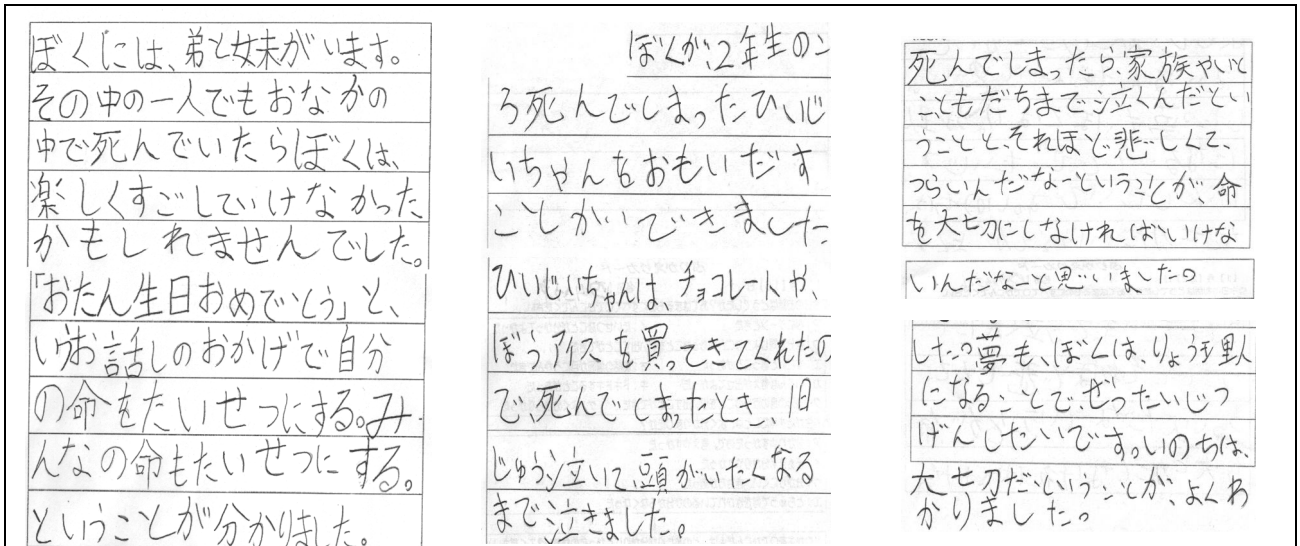 ぼくには、弟と妹がいます。
その中の一人でもおなかの
中で死んでいたらぼくは、
楽しくすごしていけなかった
かもしれませんでした。
「おたん生日おめでとう」と、
いうお話しのおかげで自分
の命をたいせつにする。み
んなの命もたいせつにする。
ということが分かりました。
ぼくが、2年生のこ
ろ死んでしまったひいじ
いちゃんをおもいだす
ことがいできました
ひいじいちゃんは、チョコレートや、
ぼうアイスを買ってきてくれたの
で、死んでしまったとき、1日
じゅう泣いて、頭がいたくなる
まで泣きました。
死んでしまったら、家族やいと
こ、ともだちまで泣くんだとい
うことと、それほど悲しくて、
つらいんだなーということが、命
を大切にしなければいけな
いんだなーと思いました。
した。夢も、ぼくは、りょう理人
になることで、ぜったいじつ
げんしたいですっいのちは、
大切だということが、よくわ
かりました。